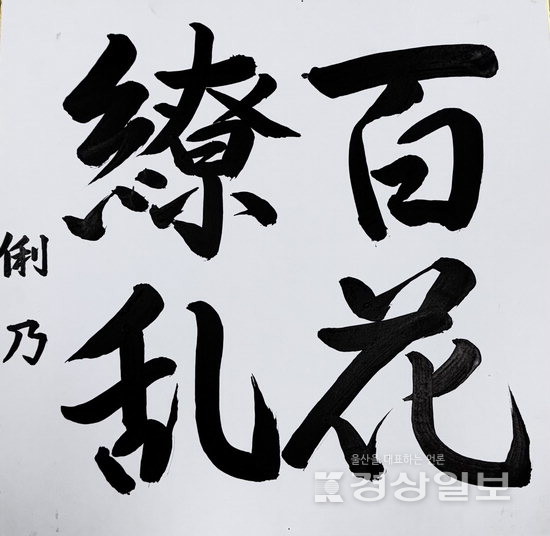 百花
繚乱
俐乃
울산을 대표하는 언론
경상일보